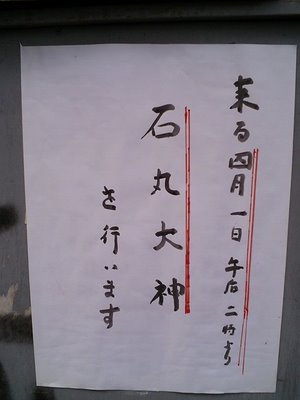 来る四月一日午后二時より
石丸大神
を行います